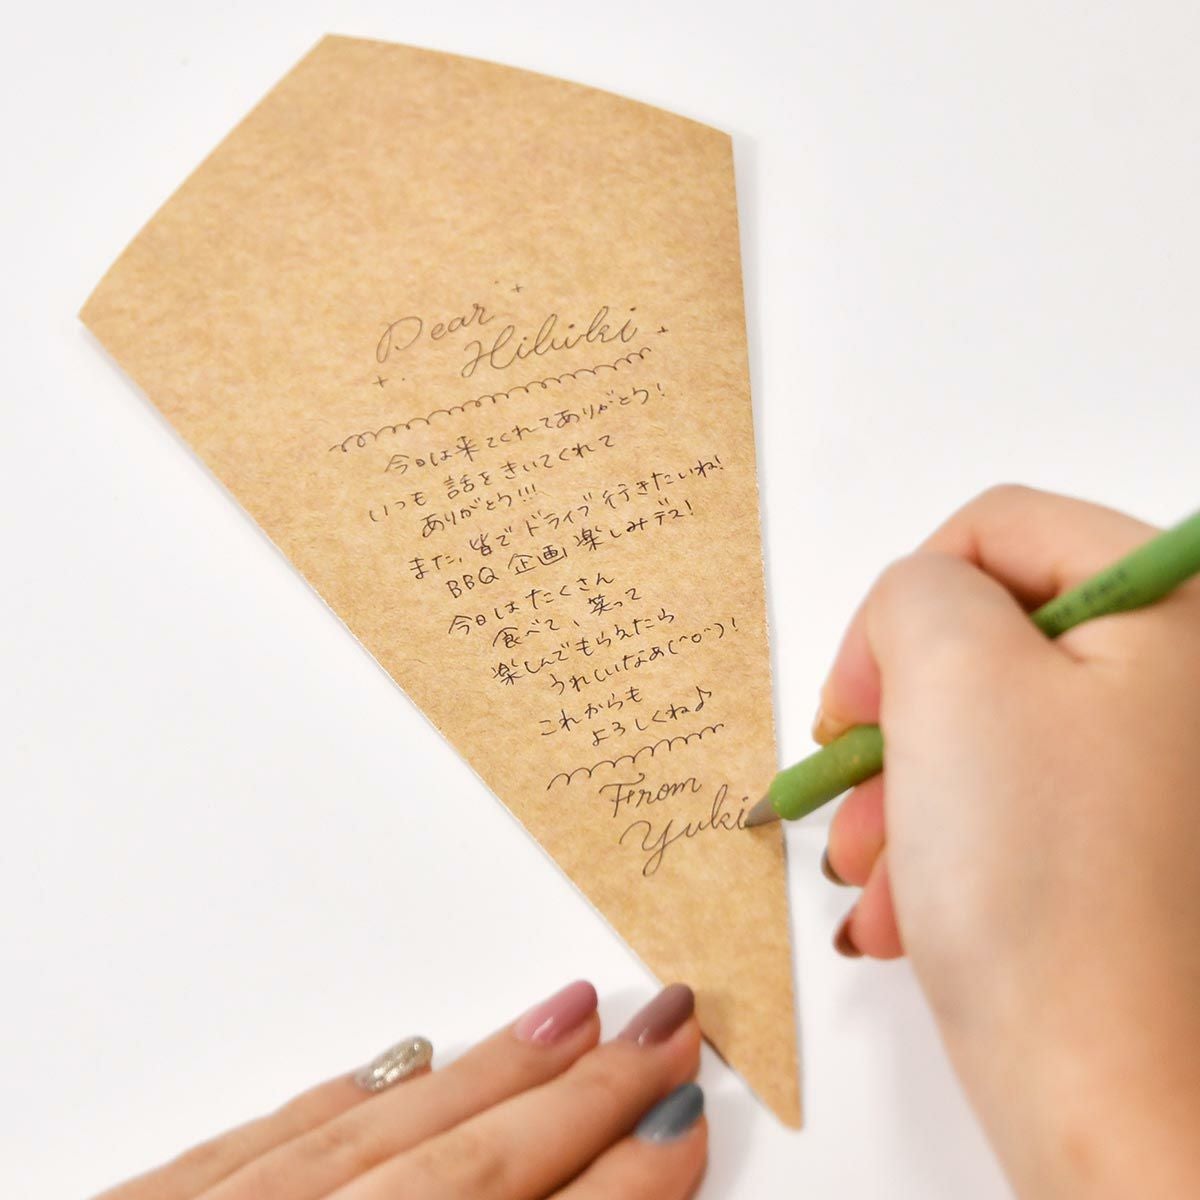 Dear
Hibiki
今日は来てくれてありがとう!
いつも 話をきいてくれて
ありがとう!!!
また、皆でドライブ行きたいね!
BBQ 企画 楽しみデス!
今日はたくさん
食べて、笑って
楽しんでもらえたら
うれしいなあ(^o^)!
これからも
よろしくね♪
From
Yuki